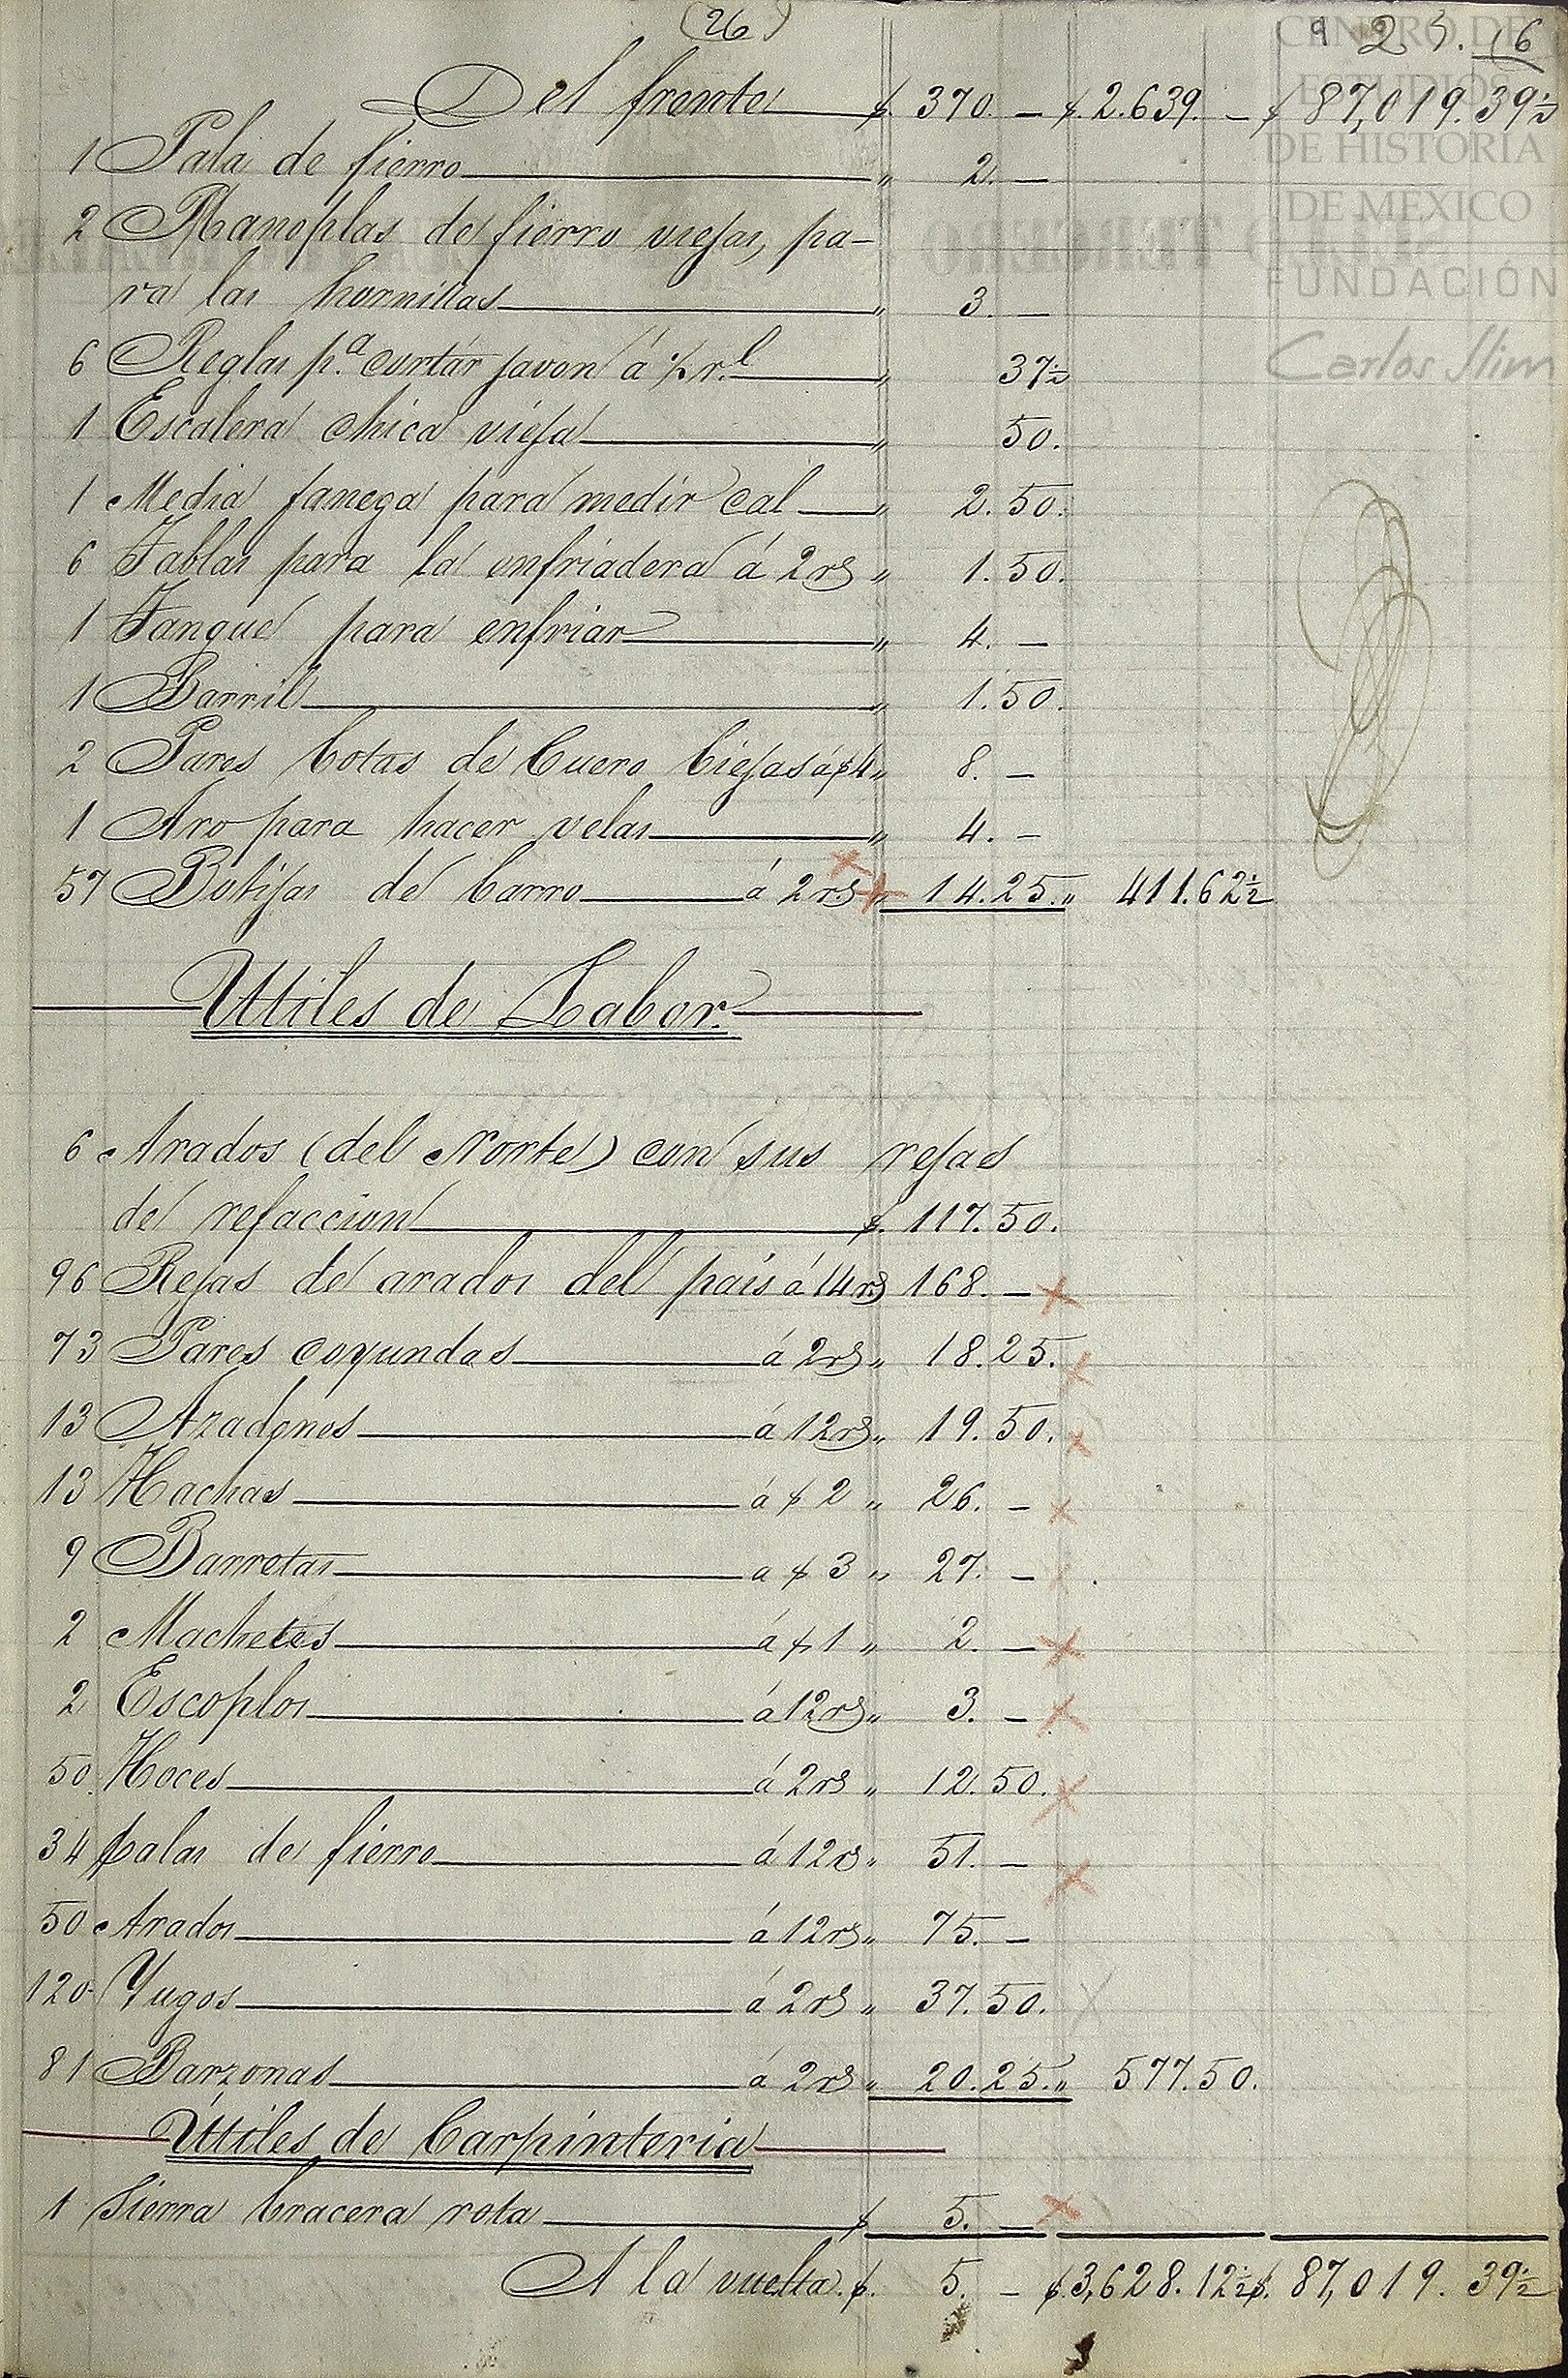 (26)
9 25. 16
CENTRO DE
ESTUDIOS
DE HISTORIA
DE MEXICO
FUNDACIÓN
Carlos Slim
TERCERO
Del frente $. 370. — $. 2.639. — $ 87,019. 39½
1 Pala de fierro " 2. —
2 Manoplas de fierro viejas, pa-
ra las hornillas " 3. —
6 Reglas p.a cortar javon á ½ r.l " 37½
1 Escalera chica vieja " 50.
1 Media fanega para medir cal " 2. 50.
6 Tablas para la enfriadera á 2 rs " 1. 50.
1 Tanque para enfriar " 4. —
1 Barril " 1. 50.
2 Pares botas de Cuero biejas á $4 " 8. —
1 Aro para hacer velas " 4. —
57 Botijas de barro á 2 rs " 14. 25. " 411. 62½
Utiles de Labor.
6 Arados (del Norte) con sus rejas
de refaccion $. 117. 50.
96 Rejas de arados del pais á 14 rs 168. —
73 Pares coyundas á 2 rs " 18. 25.
13 Azadones á 12 rs " 19. 50.
13 Hachas á $ 2 " 26. —
9 Barretas a $ 3 " 27. —
2 Machetes á $ 1 " 2. —
2 Escoplos á 12 rs " 3. —
50 Hoces á 2 rs " 12. 50.
34 palas de fierro á 12 rs " 51. —
50 Arados á 12 rs " 75. —
120 Yugos á 2 rs " 37. 50.
81 Barzonas á 2 rs " 20. 25. " 577. 50.
Útiles de Carpinteria
1 Sierra bracera rota $ 5. —
A la vuelta. $. 5. — $. 3,628. 12½ $. 87,019. 39½